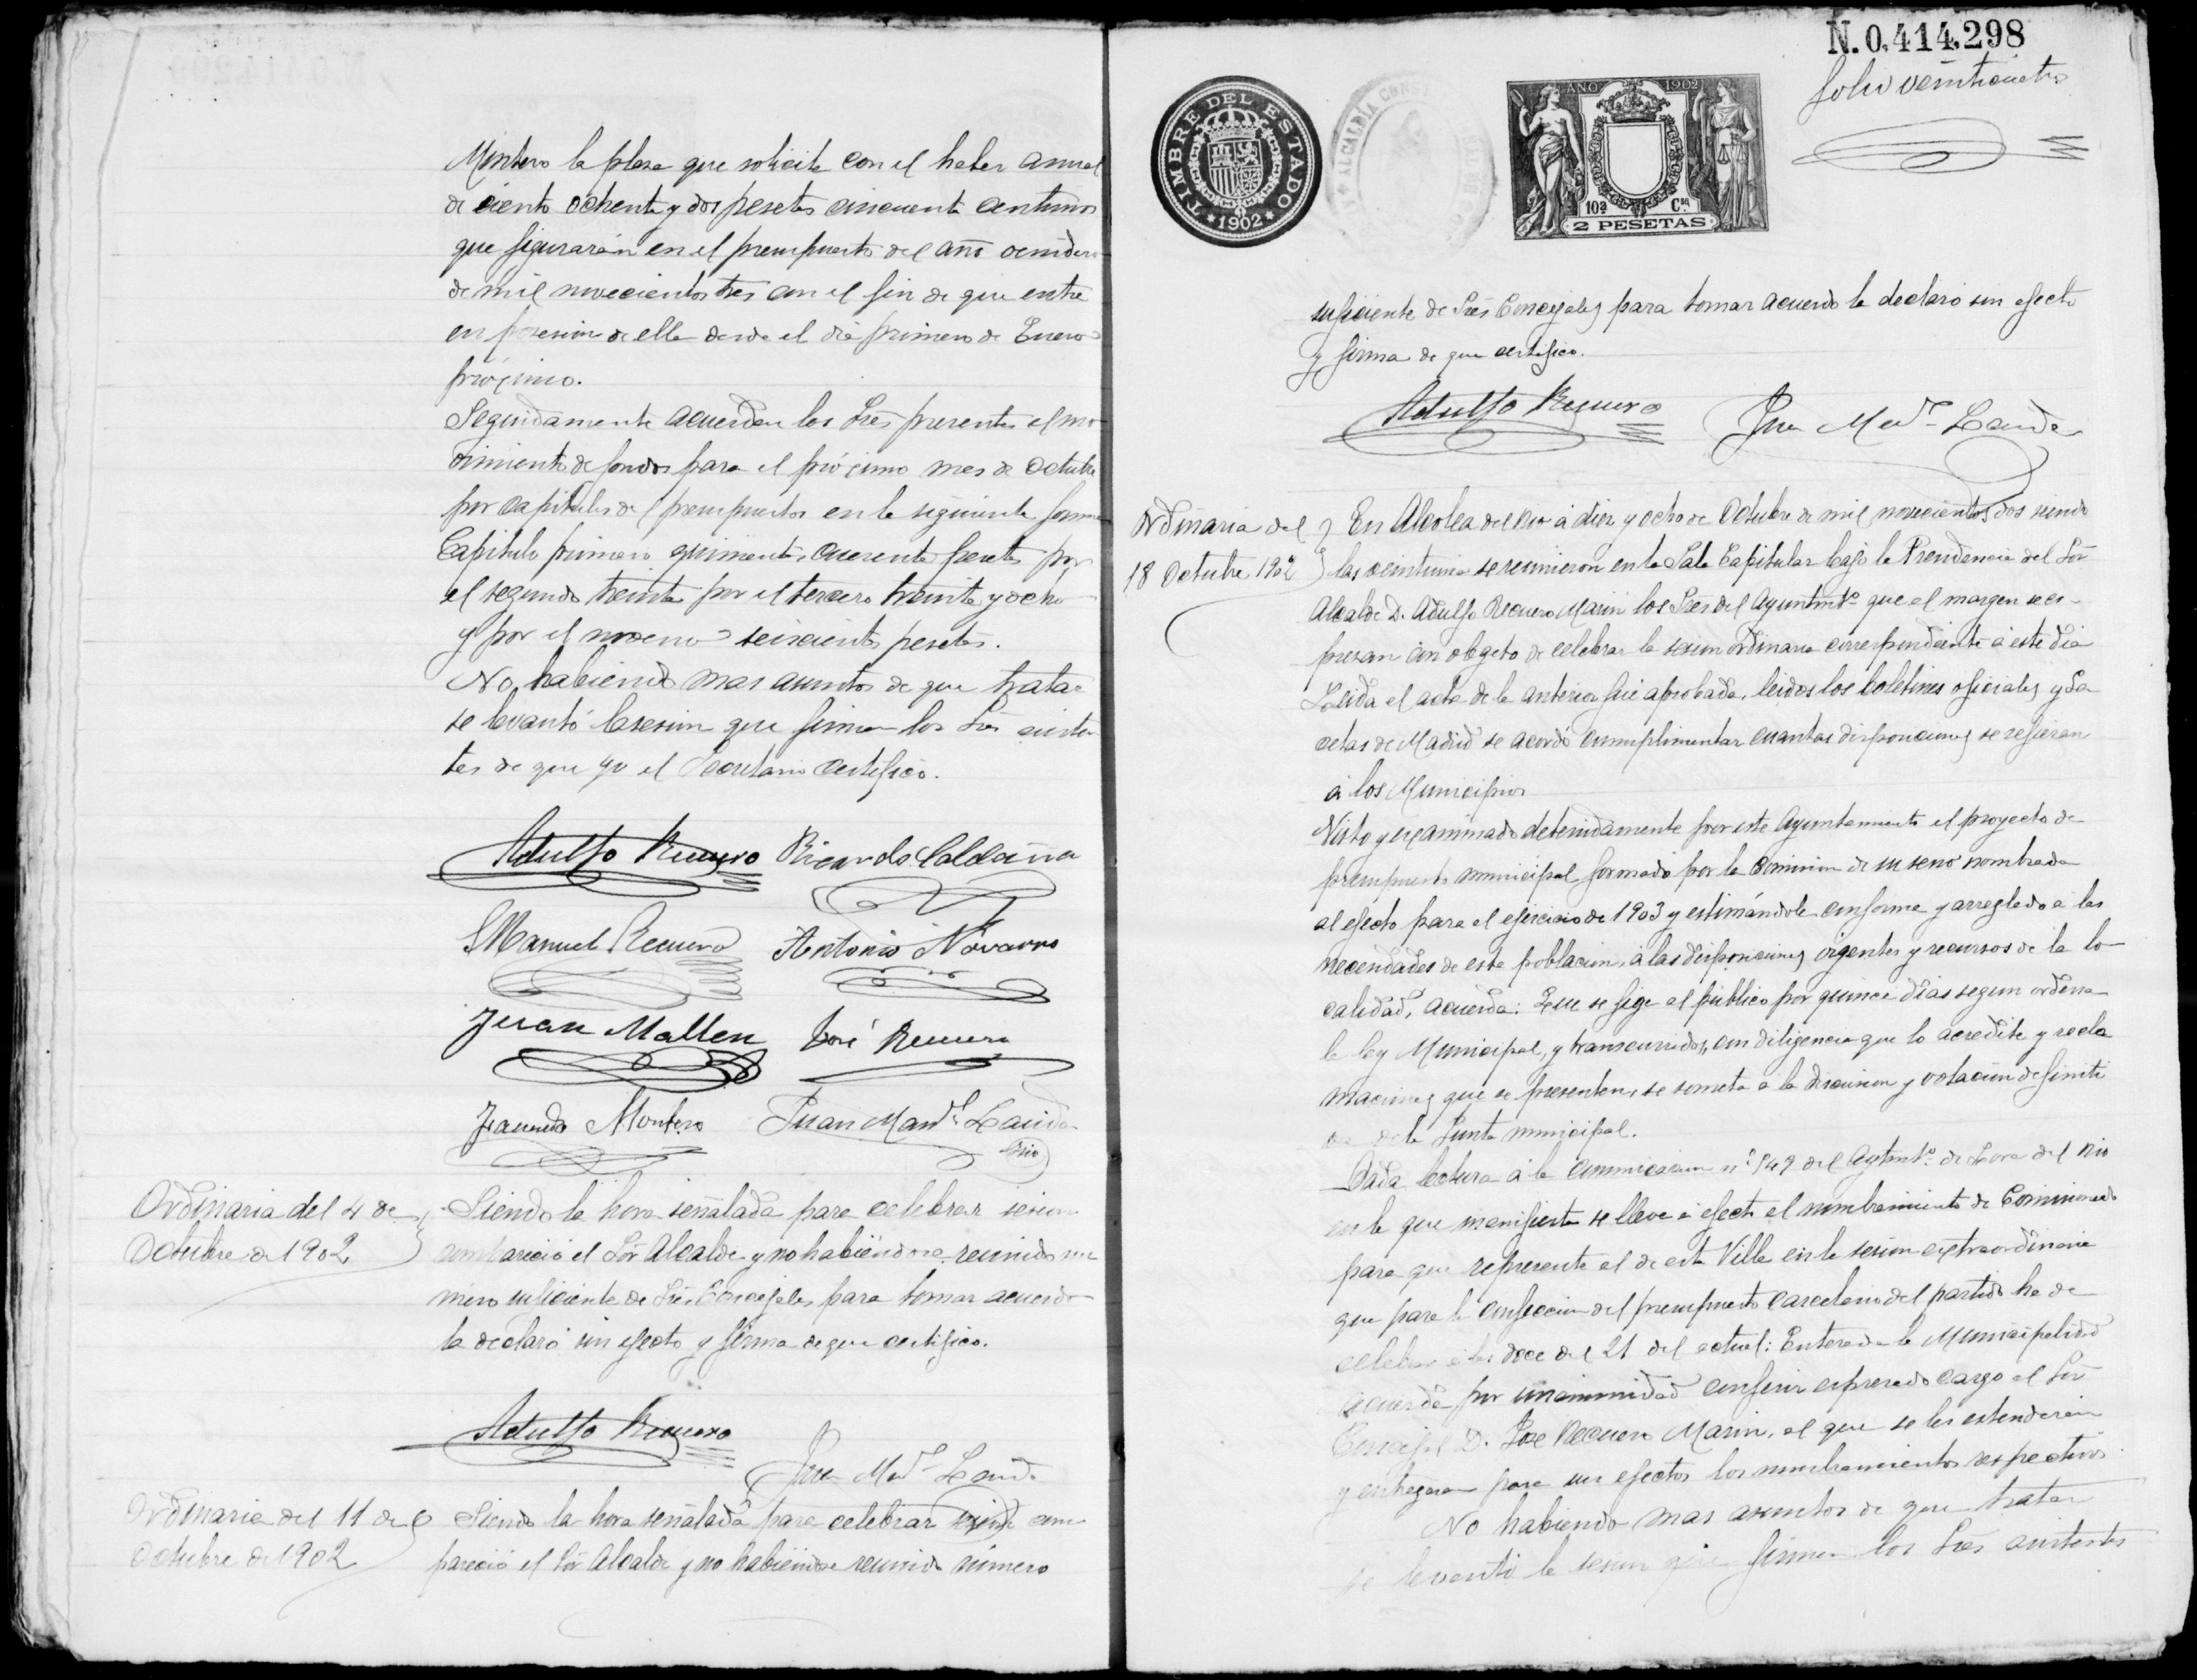 Montero la plaza que solicita con el haber anual
de ciento ochenta y dos pesetas cincuenta centimos
que figurarán en el presupuesto del año venidero
de mil novecientos tres con el fin de que entre
en posesion de ella desde el dia primero de Enero
prócsimo.
Seguidamente acuerdan los Sres presentes el mo
vimiento de fondos para el prócsimo mes de Octubre
por capitulos del presupuestos en la siguiente forma
Capitulo primero quinientas cuarenta pesetas por
el segundo treinta por el tercero treinta y ocho
y por el noveno seiscientas pesetas.
No habiendo mas asuntos de que tratar
se levantó la sesion que firman los Sres asisten
tes de que yo el Secretario certifico.
Adulfo Recuero Ricardo Caldaña
Manuel Recuero Antonio Navarro
Juan Mallen José Recuero
Facundo Montero Juan Manl Lauda
Srio
Ordinaria del 4 de
Octubre de 1902
Siendo la hora señalada para celebrar sesion
compareció el Sor Alcalde y no habiéndose reunido nu
mero suficiente de Sres Concejales para tomar acuerdo
la declaró sin efecto y firma de que certifico.
Adulfo Recuero
Ordinaria del 11 de
Octubre de 1902
Siendo la hora señalada para celebrar sesion com
pareció el Sor Alcalde y no habiéndose reunido número
N.0,414,298
folio veinticuatro
TIMBRE DEL ESTADO
1902
ALCALDIA CONST
AÑO 1902
10ª Cse
2 PESETAS
suficiente de Sres Concejales para tomar acuerdo la declaró sin efecto
y firma de que certifico.
Adulfo Recuero
Ordinaria del
18 Octubre 1902
En Alcolea del Rio á diez y ocho de Octubre de mil novecientos dos siendo
las veintiuna se reunieron en la Sala Capitular bajo la Presidencia del Sor
Alcalde D. Adulfo Recuero Marin los Sres del Ayuntmto que al margen se es-
presan con obgeto de celebrar la sesion ordinaria correspondiente á este dia
Leida el acta de la anterior fué aprobada, leidos los boletines oficiales y Ga
cetas de Madrid se acordó cumplimentar cuantas disposiciones se refieran
á los Municipios
Visto y ecsaminado detenidamente por este Ayuntamiento el proyecto de
presupuesto municipal formado por la Comision de su seno nombrada
al efecto para el ejercicio de 1903 y estimándole conforme y arreglado á las
necesidades de esta poblacion, á las disposiciones vigentes y recursos de la lo
calidad, acuerda: Que se fige al público por quince dias segun ordena
la ley Municipal, y transcurridos, con diligencia que lo acredite y recla
maciones que se presenten, se someta á la discusion y votacion definiti
va de la Junta municipal.
Dada lectura á la comunicacion nº 142 del Aytmto. de Lora del Rio
en la que manifiesta se lleve á efecto el nombramiento de Comisionado
para que represente al de esta Villa en la sesion extraordinaria
que para la confeccion del presupuesto carcelario del partido ha de
celebrar á las doce del 21 del actual: Enterada la Municipalidad
acuerda por unanimidad conferir espresado cargo al Sor
Concejal D. Jose Recuero Marin, al que se les estenderán
y entregaran para sus efectos los nombramientos respectivos.
No habiendo mas asuntos de que tratar
se levantó la sesion que firman los Sres asistentes